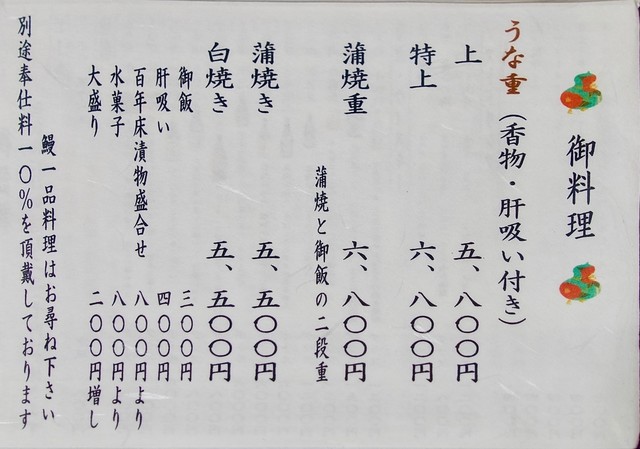 御料理
うな重（香物・肝吸い付き）
上 五、八〇〇円
特上 六、八〇〇円
蒲焼重 六、八〇〇円
蒲焼と御飯の二段重
蒲焼き 五、五〇〇円
白焼き 五、五〇〇円
御飯 三〇〇円
肝吸い 四〇〇円
百年床漬物盛合せ 八〇〇円より
水菓子 八〇〇円より
大盛り 二〇〇円増し
鰻一品料理はお尋ね下さい
別途奉仕料一〇%を頂戴しております